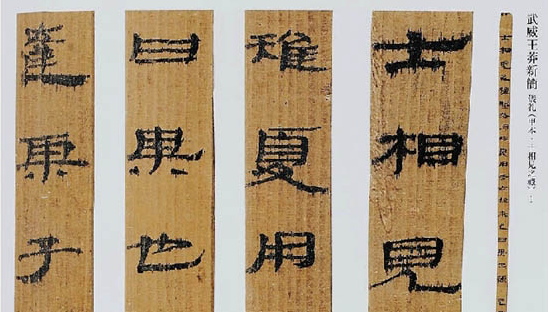 武威王莽新簡 儀礼 甲本 相見之禮
士相見
雉夏用
曰某也
達某子